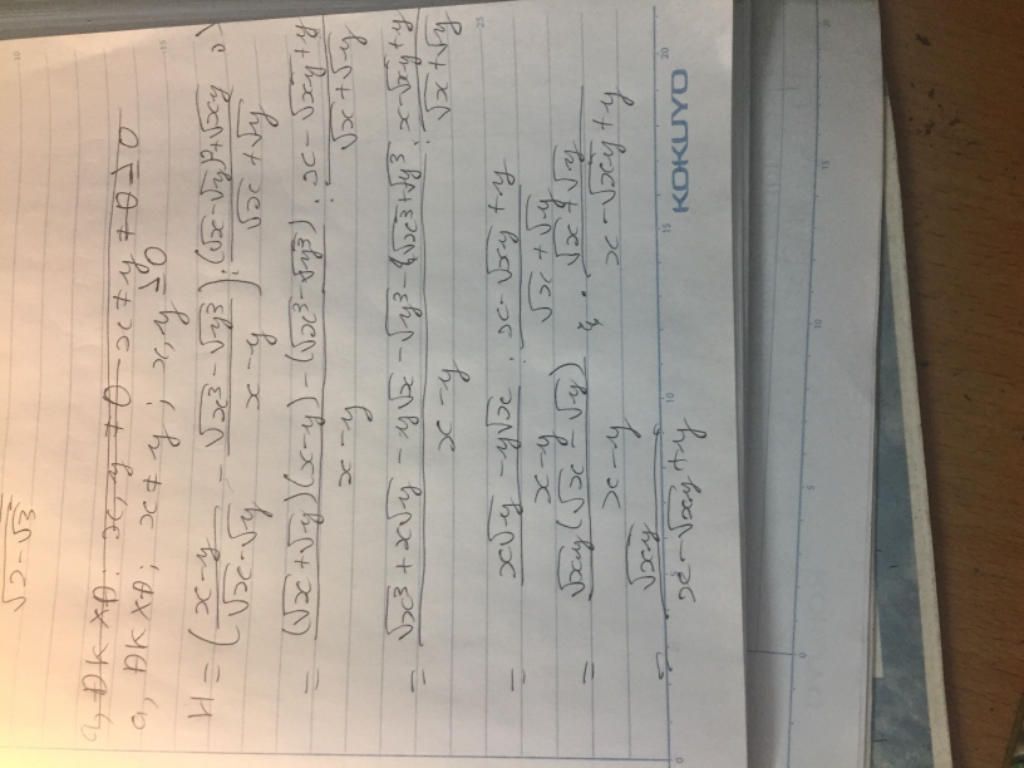 √2-√3
a, ĐKXĐ: x-y ≠ 0 - x ≠ y ≠ 0 ≥ 0
a, ĐKXĐ: x ≠ y; x,y ≥ 0
H = (x-y/√x-√y - √x³-√y³/x-y) : (√x-√y)²+√xy/√x+√y
= (√x+√y)(x-y)-(√x³-√y³)/x-y : x-√xy+y/√x+√y
= √x³+x√y-y√x-√y³-(√x³+√y³)/x-y : x-√xy+y/√x+√y
= x√y-y√x/x-y : x-√xy+y/√x+√y
= √xy(√x-√y)/x-y . √x+√y/x-√xy+y
= √xy/x-√xy+y
KOKUYO
0
5
10
15
20
25